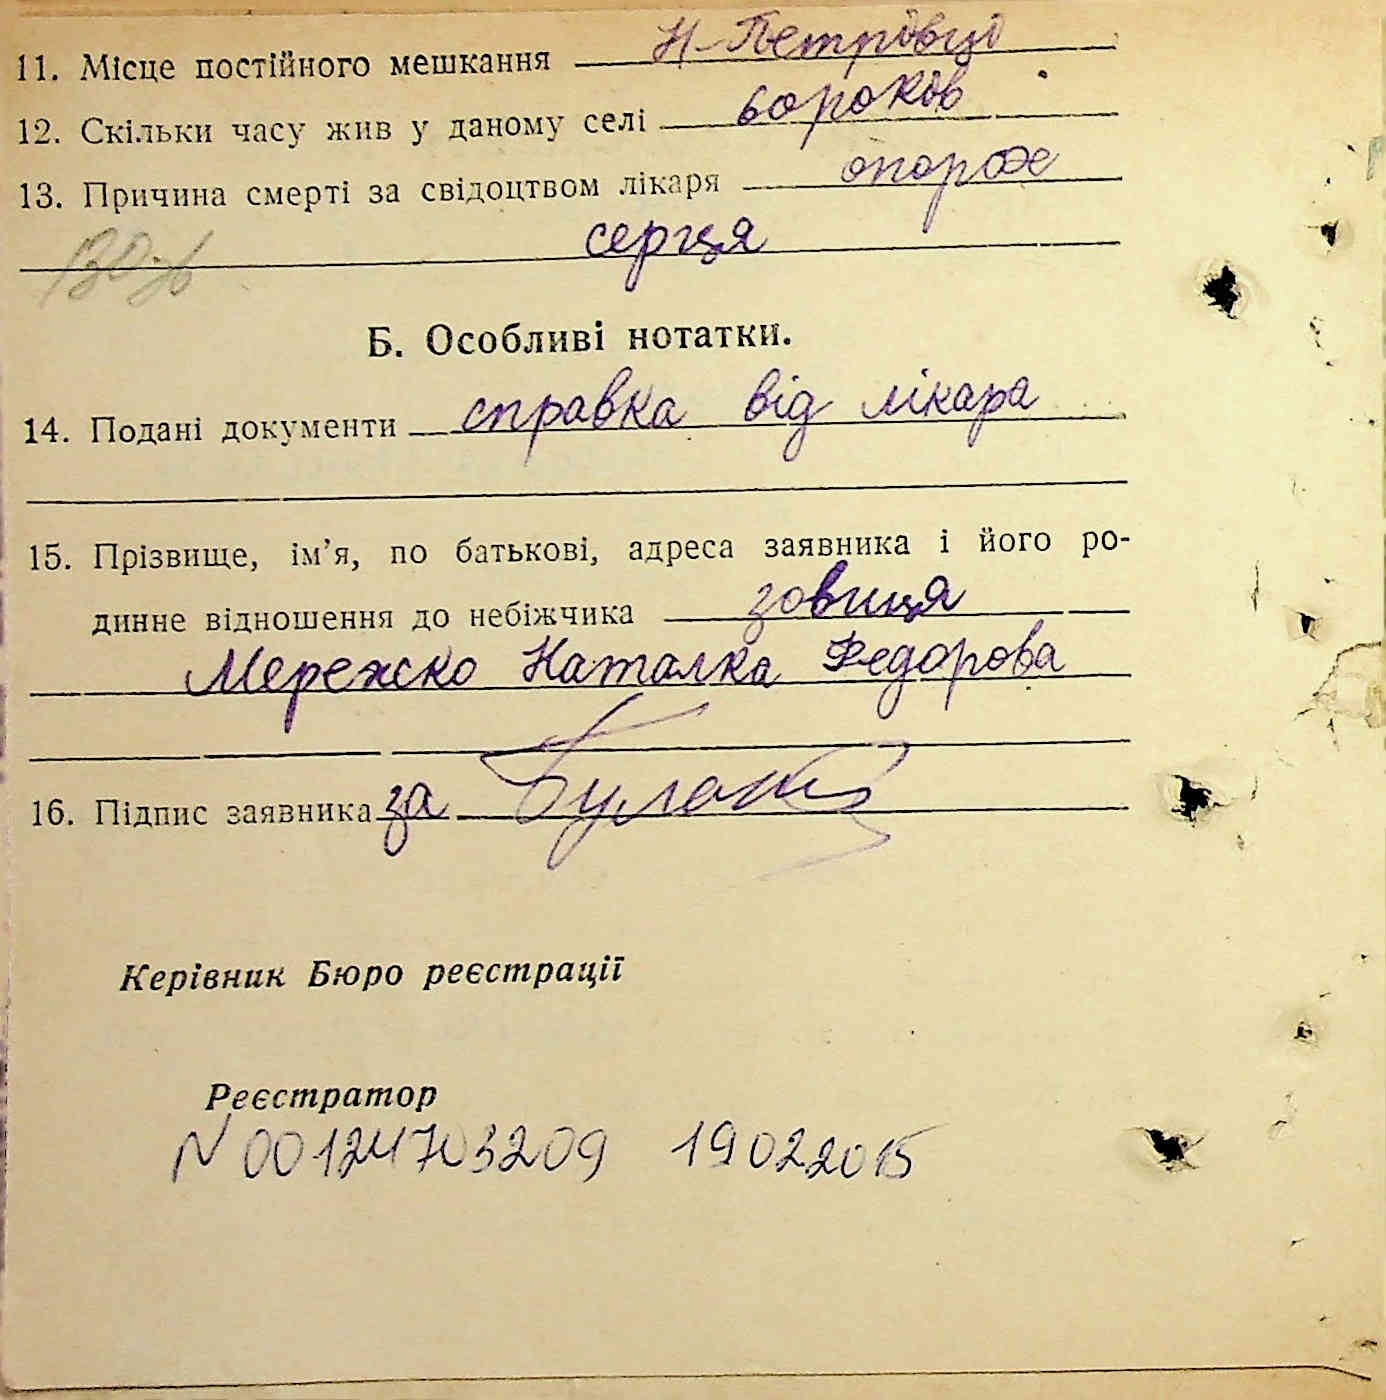 11. Місце постійного мешкання Н-Петрівці
12. Скільки часу жив у даному селі 60 років
13. Причина смерті за свідоцтвом лікаря
серця
Б. Особливі нотатки.
14. Подані документи справка від лікара
15. Прізвище, ім’я, по батькові, адреса заявника і його ро-
динне відношення до небіжчика зовиця
Мережко Наталка Федорова
16. Підпис заявника за
Керівник Бюро реєстрації
Реєстратор
N 00124703209 19022015